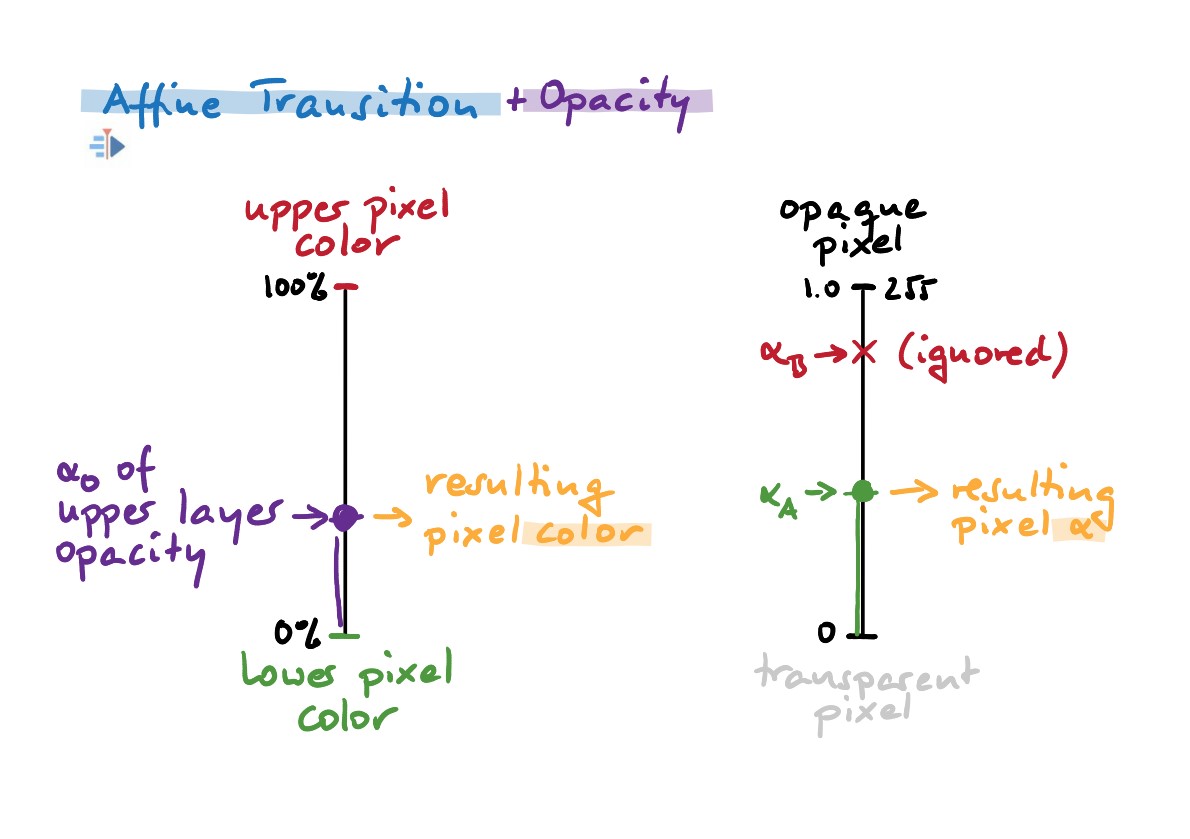 Affine Transition + Opacity
upper pixel
color
100%
α₀ of
upper layer
opacity
resulting
pixel color
0%
lower pixel
color
opaque
pixel
1.0 255
α_B (ignored)
α_A
resulting
pixel α
0
transparent
pixel